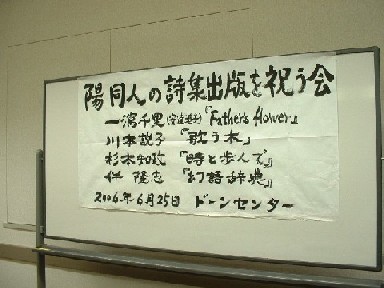 陽同人の詩集出版を祝う会
一瀉千里 『Father's flower』
川本説子『歌う木』
杉本知政『時と歩んで』
伴 隆志『幻語辞典』
2006.年6月25日 ドーンセンター